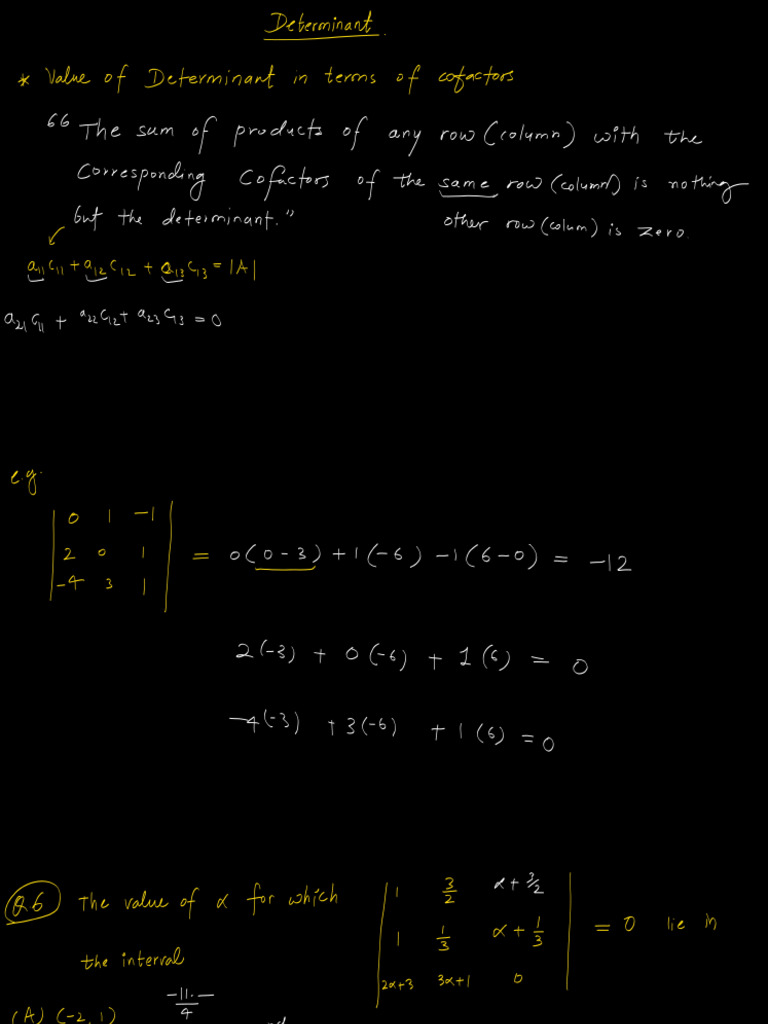 Determinant.
* Value of Determinant in terms of cofactors
“ The sum of products of any row (column) with the
Corresponding Cofactors of the same row (column) is nothing
but the determinant.”
other row (colum) is zero.
a₁₁c₁₁ + a₁₂c₁₂ + a₁₃c₁₃ = |A|
a₂₁c₁₁ + a₂₂c₁₂ + a₂₃c₁₃ = 0
e.g.
| 0 1 -1 |
| 2 0 1 | = 0(0-3) + 1(-6) -1(6-0) = -12
| -4 3 1 |
2(-3) + 0(-6) + 1(6) = 0
-4(-3) + 3(-6) + 1(6) = 0
Q6 The value of α for which
the interval
| 1 3/2 α+3/2 |
| 1 1/3 α+1/3 | = 0 lie in
| 2α+3 3α+1 0 |
(A) (-2, 1)